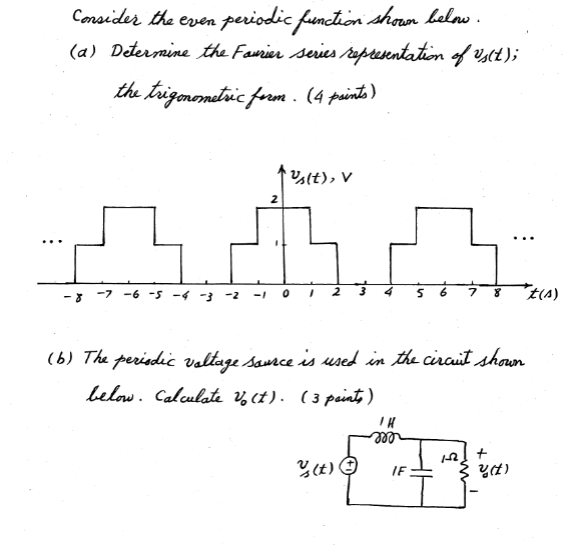 Consider the even periodic function shown below.
(a) Determine the Fourier series representation of vs(t);
the trigonometric form. (4 points)
vs(t), V
2
1
... ...
-8 -7 -6 -5 -4 -3 -2 -1 0 1 2 3 4 5 6 7 8 t(s)
(b) The periodic voltage source is used in the circuit shown
below. Calculate vo(t). (3 points)
1 H
vs(t) + 1F 1Ω + vo(t) -